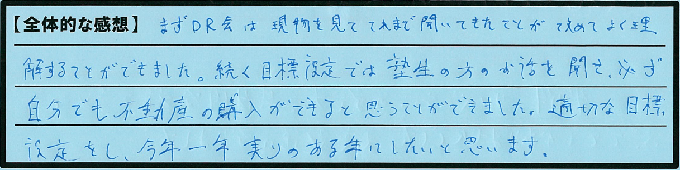 【全体的な感想】 まずDR会は現物を見てこれまで聞いてきたことが改めてよく理
解することができました。続く目標設定では塾生の方のお話を聞き、必ず
自分でも不動産の購入ができると思うことができました。適切な目標
設定をし、今年一年実りのある年にしたいと思います。